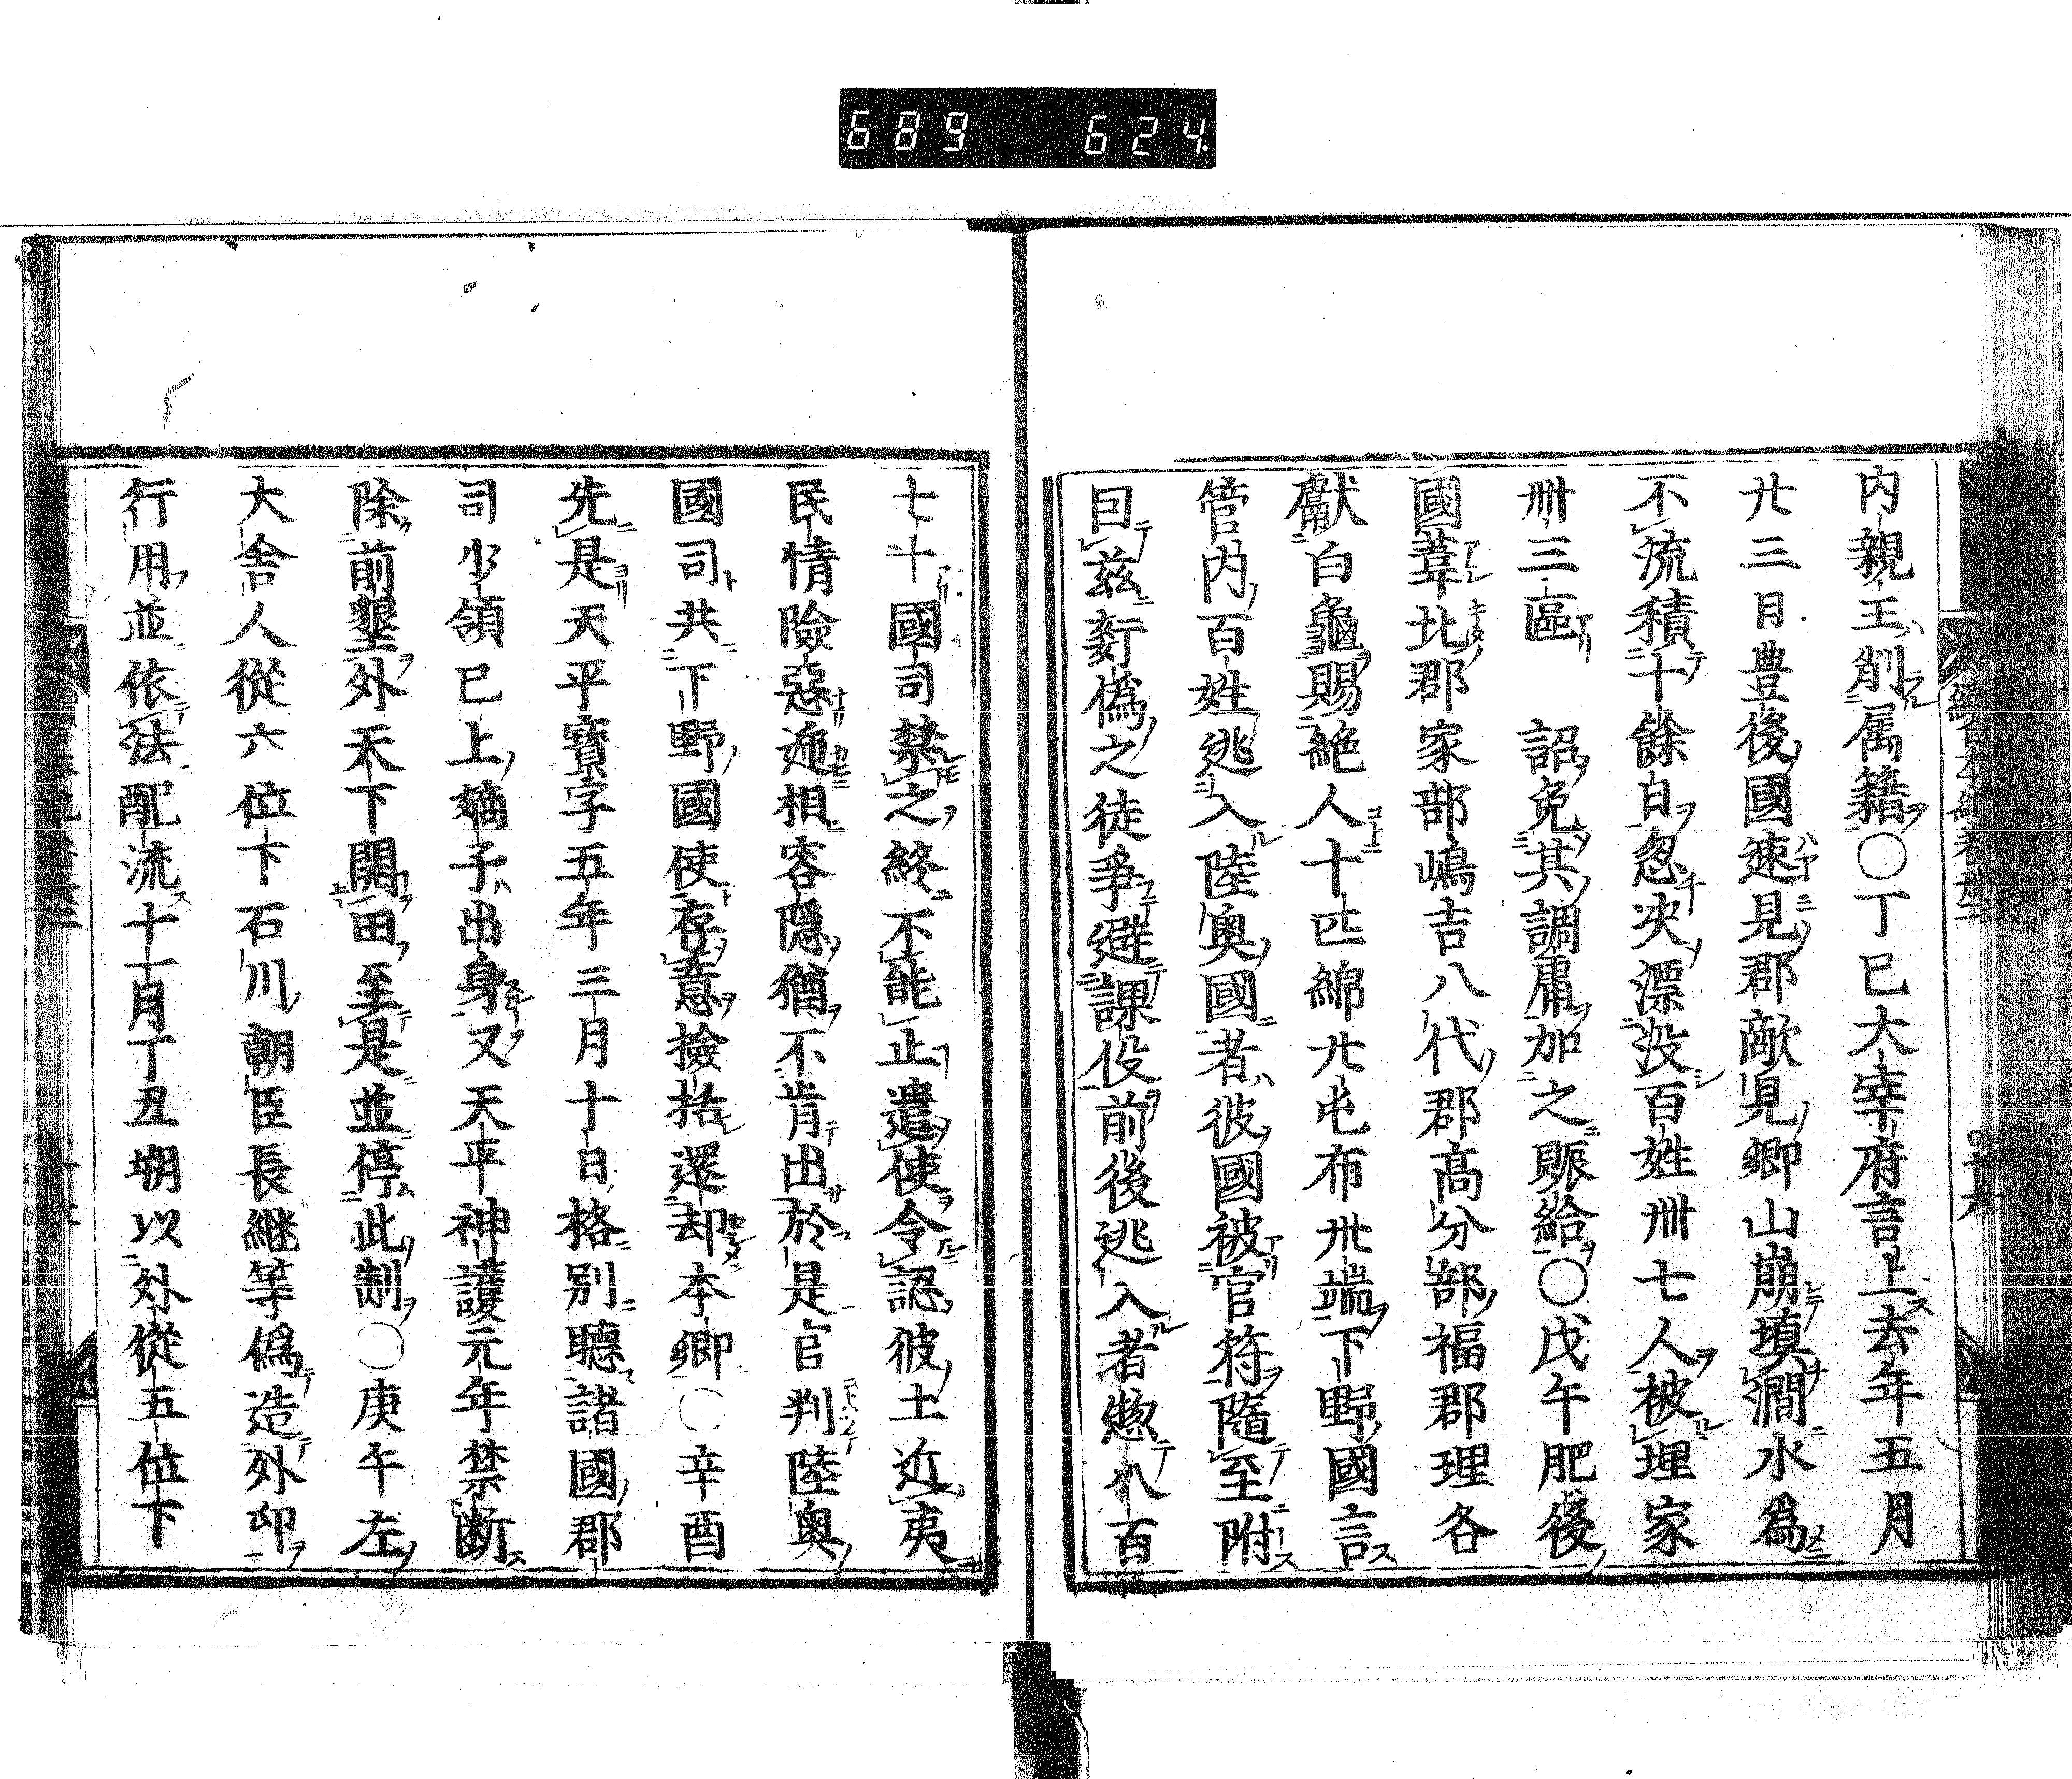 689 624.
内親王削属籍〇丁巳大宰府言上去年五月
廿三日豊後國速見郡敵見郷山崩填澗水為
不流積十餘日忽决漂没百姓卌七人被埋家
卌三區 詔免其調庸加之賑給〇戊午肥後
國葦北郡家部嶋吉八代郡高分部福郡理各
獻白龜賜絁人十匹綿廿屯布卅端下野國言
管内百姓逃入陸奥國者彼國被官符隨至附
曰茲姧偽之徒爭避課役前後逃入者惣八百
七十國司禁之終不能止遣使令認彼土近夷
民情險惡遞相容隱猶不肯出於是官判陸奥
國司共下野國使存意撿括還却本郷〇辛酉
先是天平寳字五年三月十日格別聽諸國郡
司少領已上嫡子出身又天平神護元年禁断
除前墾外天下開田至是並停此制〇庚午左
大舎人從六位下石川朝臣長継等偽造外印
行用並依法配流十一月丁丑朔以外從五位下